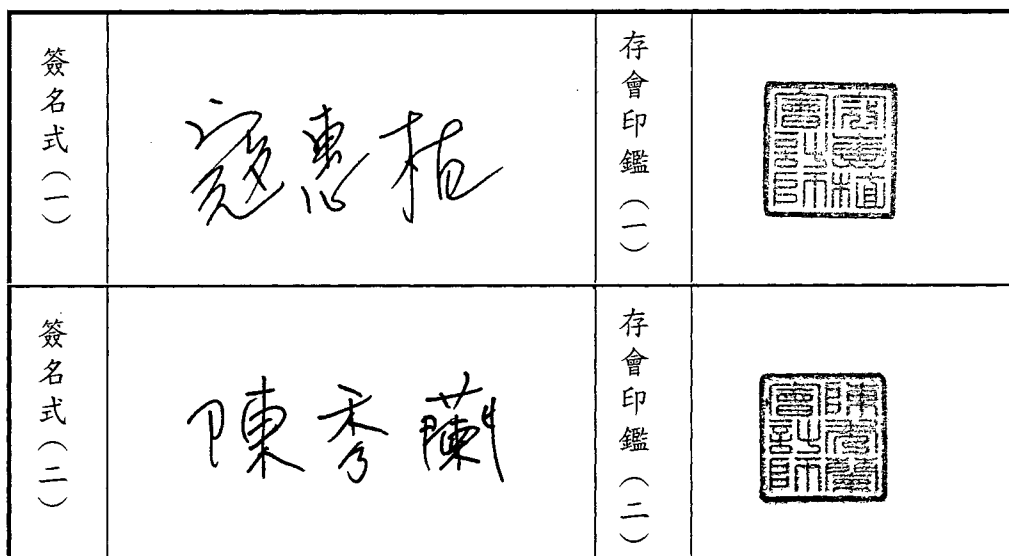 簽名式(一)
寇惠植
存會印鑑(一)
寇惠植會計師
簽名式(二)
陳秀蘭
存會印鑑(二)
陳秀蘭會計師